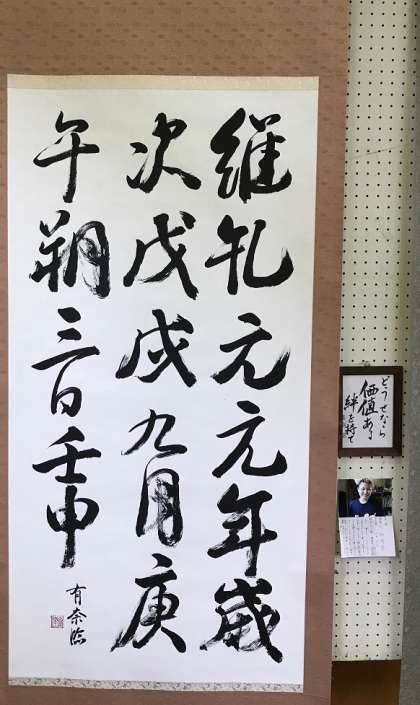 維乾元元年歲
次戊戌九月庚
午朔三日壬申
有奈臨
どうせなら
価値ある
絆を持て